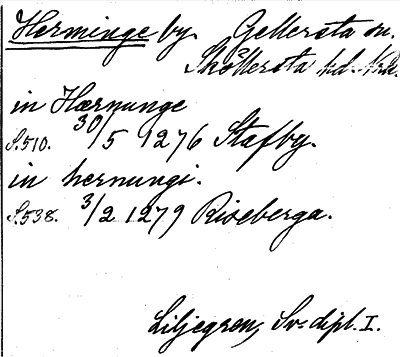 Herminge by. Gellersta sn.
Sköllersta hd. Nrk.
in Hærnunge
S.510. 30/5 1276 Stafby.
in hernungi.
S.538. 3/2 1279 Riseberga.
Liljegren, Sv. dipl. I.